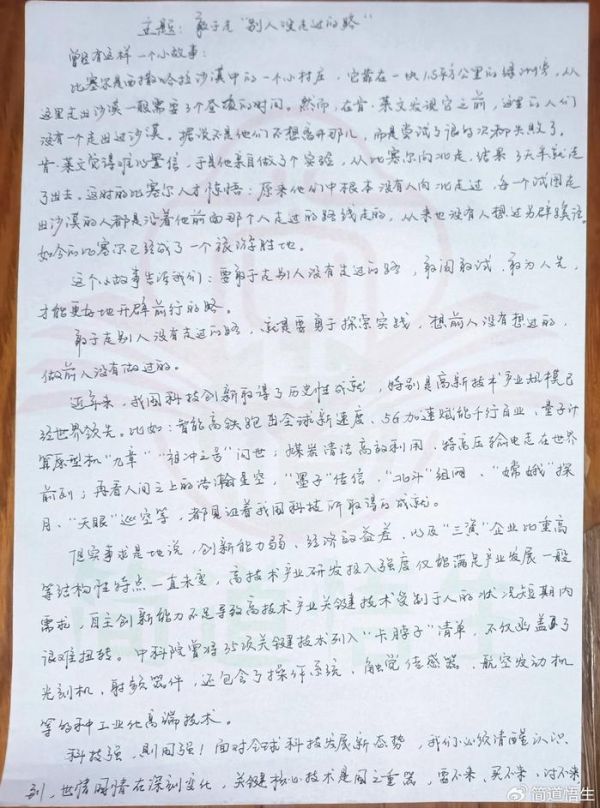 主题：敢于走“别人没走过的路”
曾经有这样一个小故事：
比塞尔是西撒哈拉沙漠中的一个小村庄，它靠在一块1.5平方公里的绿洲旁，从
这里走出沙漠一般需要3个昼夜的时间。然而，在肯·莱文发现它之前，这里的人们
没有一个走出过沙漠。据说不是他们不想离开那儿，而是尝试了很多次都失败了。
肯·莱文觉得难以置信，于是他亲自做了个实验，从比塞尔向北走，结果3天半就走
了出去。这时的比塞尔人才惊悟：原来他们中根本没有人向北走过，每一个试图走
出沙漠的人都是沿着他前面那个人走过的路线走的，从来也没有人想过另辟蹊径。
如今的比塞尔已经成了一个旅游胜地。
这个小故事告诉我们：要敢于走别人没有走过的路，敢闯敢试，敢为人先，
才能更好地开辟前行的路。
敢于走别人没有走过的路，就是要勇于探索实践，想前人没有想过的，
做前人没有做过的。
近年来，我国科技创新取得了历史性成就，特别是高新技术产业规模已
经世界领先。比如：智能高铁跑出全球新速度、5G加速赋能千行百业、量子计
算原型机“九章”“祖冲之号”问世；煤炭清洁高效利用，特高压输电走在世界
前列；再看人间之上的浩瀚星空，“墨子”传信、“北斗”组网、“嫦娥”探
月、“天眼”巡空等，都见证着我国科技所取得的成就。
但实事求是地说，创新能力弱、经济效益差、以及“三资”企业比重高
等结构性特点一直未变，高技术产业研发投入强度仅能满足产业发展一般
需求，自主创新能力不足导致高技术产业关键技术受制于人的状况短期内
很难扭转。中科院曾将35项关键技术列入“卡脖子”清单，不仅涵盖了
光刻机、射频器件，还包含了操作系统、触觉传感器、航空发动机
等的种工业化高端技术。
科技强，则国强！面对全球科技发展新态势，我们必须清醒认识
到，世情国情在深刻变化，关键核心技术是国之重器，要不来、买不来、讨不来
简道悟生